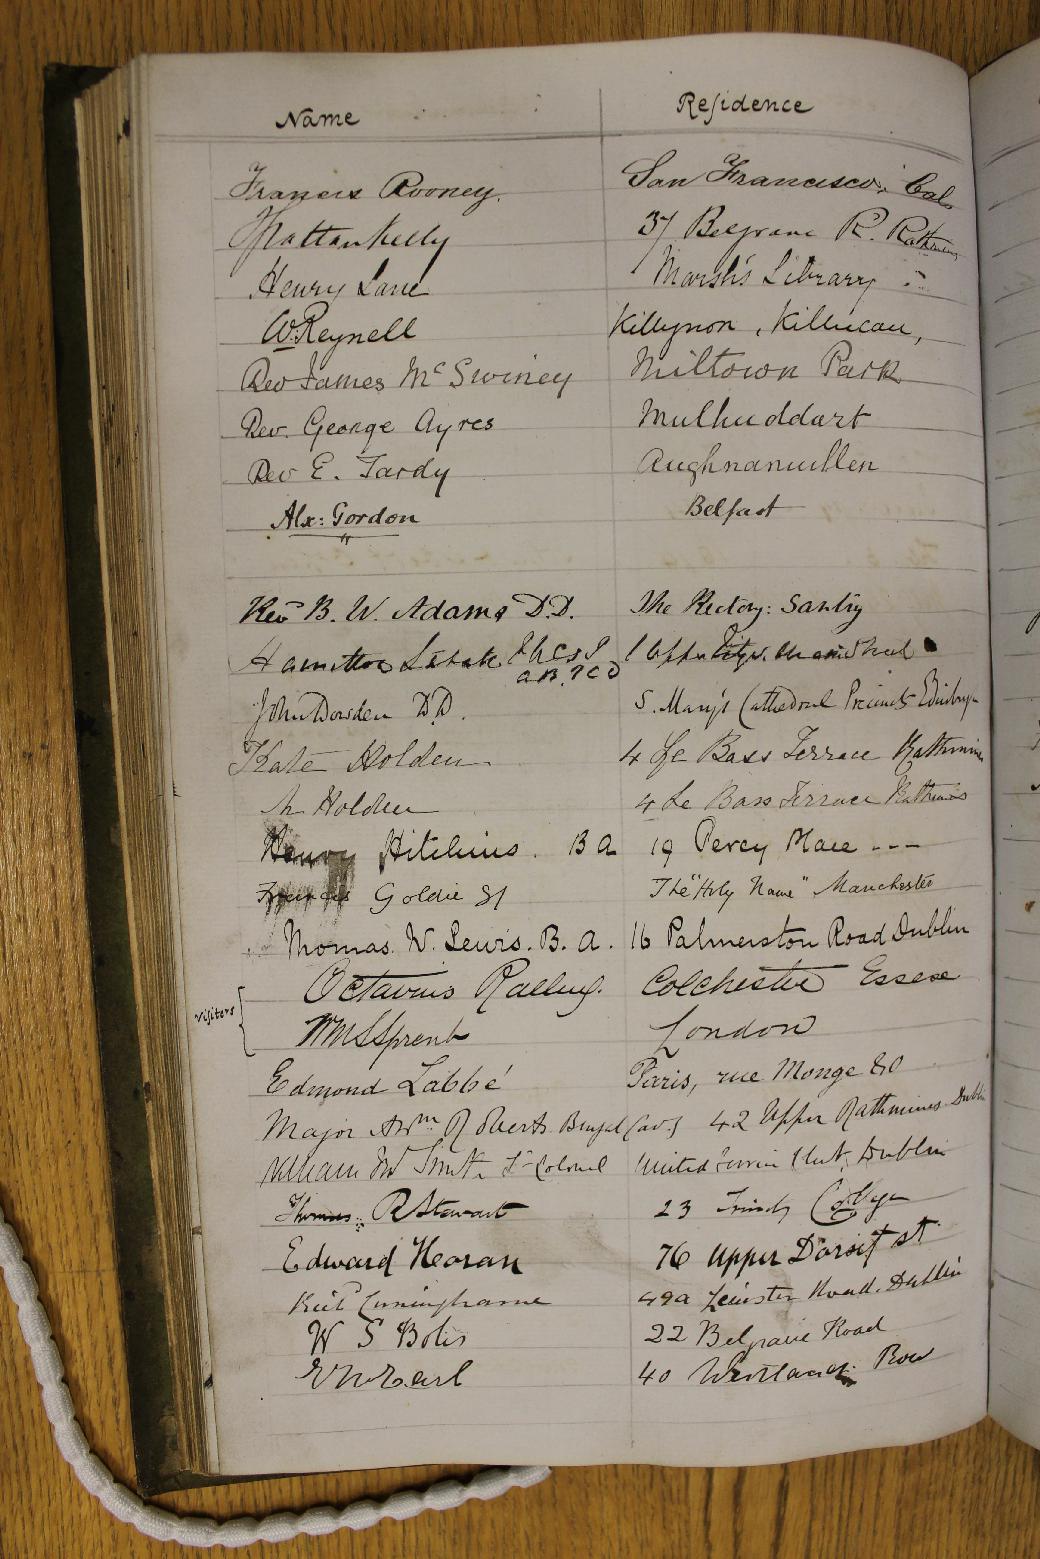 Name Residence
Francis Rooney. San Francisco. Cal.
Grattan Kelly 37 Belgrave R. Rathmines
Henry Lane Marsh's Library
W. Reynell Killynon, Killucan,
Rev James McSwiney Miltown Park
Rev. George Ayres Mulhuddart
Rev E. Tardy Aughnamullen
Alx: Gordon Belfast
Revd B. W. Adams D.D. The Rectory: Santry
Hamilton 1 Upper Street
A.B. T C D
John Dowden D.D. S. Mary's Cathedral Precincts Edinburgh
Kate Holden 4 Le Bass Terrace Rathmines
M Holden 4 Le Bass Terrace Rathmines
Henry Hitchins. B A 19 Percy Place ---
Francis Goldie SJ The "Holy Name" Manchester
Thomas. W. Lewis. B. A. 16 Palmerston Road Dublin
Octavius Colchester Essex
Visitors
Wm S Sprent London
Edmond Labbé Paris, rue Monge 80
Major Roberts Bengal Cav. 42 Upper Rathmines Dublin
William Smith Lt Colonel United Service Club, Dublin
Thomas. R Stewart 23 Trinity College
Edward Horan 76 Upper Dorset st
Cuninghame 49a Leinster Road. Dublin
W S 22 Belgrave Road
Earl 40 Westland Row